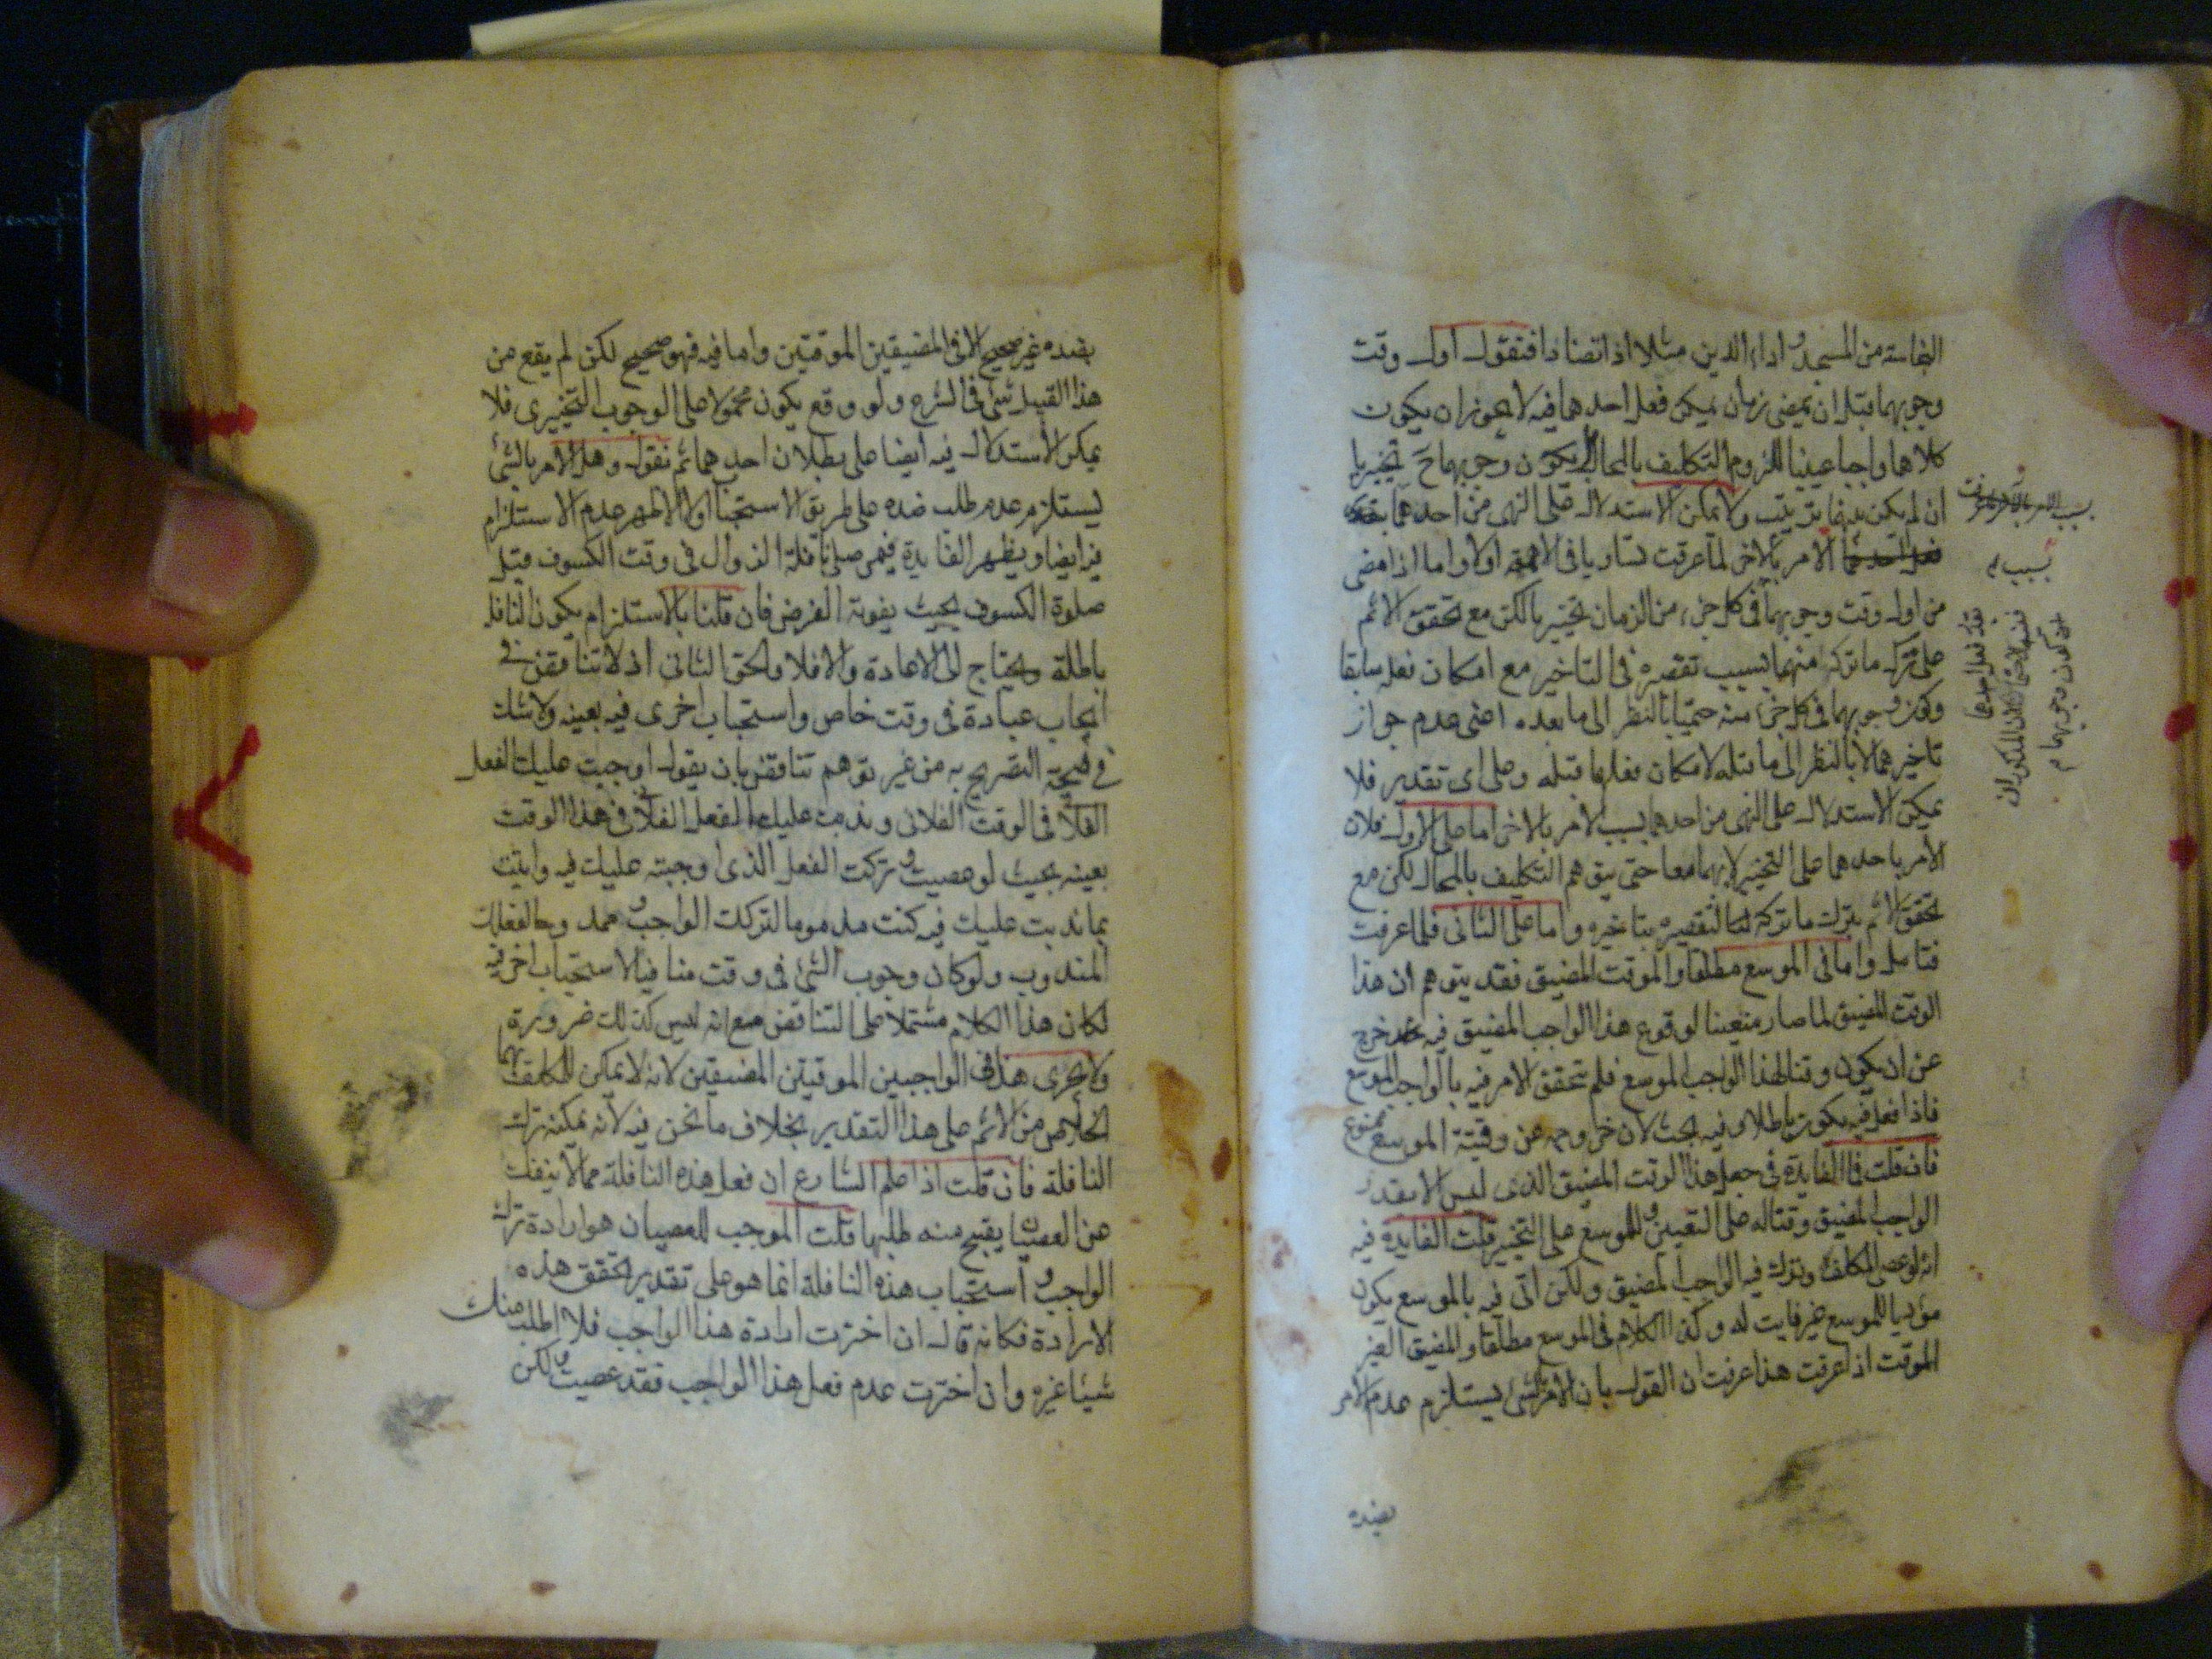 النجاسة من المسجد و اداء الدين مثلا اذا تضادا فنقول اول وقت
وجوبهما قبل ان يمضى زمان يمكن فعل احدهما فيه لا يجوز ان يكون
كلاهما واجبا عينيا للزوم التكليف بالمحال بل يكون وجوبهما ح تخييريا
ان لم يكن بينهما ترتيب ولا يمكن الاستدلال على النهى من احدهما
الامر بالاخر لما عرفت تساويا فى الاهمية اولا واما اذا مضى
من اول وقت وجوبهما فى كل جزء من الزمان تخييريا لكن مع تحقق الاثم
على ترك ما تركه منهما بسبب تقصيره فى التاخير مع امكان فعله سابقا
وكون وجوبهما فى كل جزء منه حتميا بالنظر الى ما بعده اعنى عدم جواز
تاخيرهما لا بالنظر الى ما قبله لامكان فعلهما قبله وعلى اى تقدير فلا
يمكن الاستدلال على النهى من احدهما بسبب الامر بالاخر اما على الاول فلان
الامر باحدهما على التخيير لا بهما معا حتى يتوهم التكليف بالمحال لكن مع
تحقق الاثم بترك ما تركه لتقصيره بتاخيره واما على الثانى فلما عرفت
فتامل واما فى الموسع مطلقا والموقت المضيق فقد يتوهم ان هذا
الوقت المضيق لما صار متعينا لوقوع هذا الواجب المضيق فيه خرج
عن ان يكون وقتا لهذا الواجب الموسع فلم يتحقق الامر فيه بالواجب الموسع
فاذا فعل فيه يكون باطلا و فيه بحث لان خروجه عن وقتية الموسع ممنوع
فان قلت فما الفايدة فى جعل هذا الوقت المضيق الذى ليس الا بقدر
الواجب المضيق وقتا له على التعيين و للموسع على التخيير قلت الفايدة فيه
انه لو عصى المكلف وترك فيه الواجب المضيق ولكن اتى فيه بالموسع يكون
مؤديا للموسع غير فايت له وكذا الكلام فى الموسع مطلقا والمضيق الغير
الموقت اذا عرفت هذا عرفت ان القول بان الامر بالشئ يستلزم عدم الامر
بضده
بسبب
قبل فعل احدهما
ان كون وجوبهما
بضده غير صحيح الا فى المضيقين الموقتين واما فيه فهو صحيح لكن لم يقع من
هذا القبيل شئ فى الشرع ولو وقع يكون محمولا على الوجوب التخييرى فلا
يمكن الاستدلال فيه ايضا على بطلان احدهما ثم نقول وهل الامر بالشئ
يستلزم عدم طلب ضده على طريق الاستحباب اولا الاظهر عدم الاستلزام
فيه ايضا ويظهر الفايدة فيمن صلى نافلة الزوال فى وقت الكسوف قبل
صلوة الكسوف بحيث يفوته الفرض فان قلنا بالاستلزام يكون النافلة
باطلة ويحتاج الى الاعادة والا فلا والحق الثانى اذ لا تناقض فى
ايجاب عبادة فى وقت خاص واستحباب اخرى فيه بعينه ولا شك
فى صحة التصريح به من غير توهم تناقض بان يقول اوجبت عليك الفعل
الفلانى فى الوقت الفلانى وندبت عليك الفعل الفلانى فى هذا الوقت
بعينه بحيث لو عصيت و تركت الفعل الذى اوجبته عليك فيه واتيت
بما ندبت عليك فيه كنت مذموما لتركك الواجب و ممدوحا لفعلك
المندوب ولو كان وجوب الشئ فى وقت منافيا لاستحباب اخر فيه
لكان هذا الكلام مشتملا على التناقض مع انه ليس كذلك ضرورة
ولا يجرى هذا فى الواجبين الموقتين المضيقين لانه لا يمكن للمكلف بهما
الخلاص من الاثم على هذا التقدير بخلاف ما نحن فيه لانه يمكنه ترك
النافلة فان قلت اذا علم الشارع ان فعل هذه النافلة مما لا ينفك
عن العصيان يقبح منه طلبها قلت الموجب للعصيان هو ارادة ترك
الواجب و استحباب هذه النافلة انما هو على تقدير تحقق هذه
الارادة فكانه قال ان اخترت ارادة هذا الواجب فلا اطلب منك
شيئا غيره وان اخترت عدم فعل هذا الواجب فقد عصيت و لكن